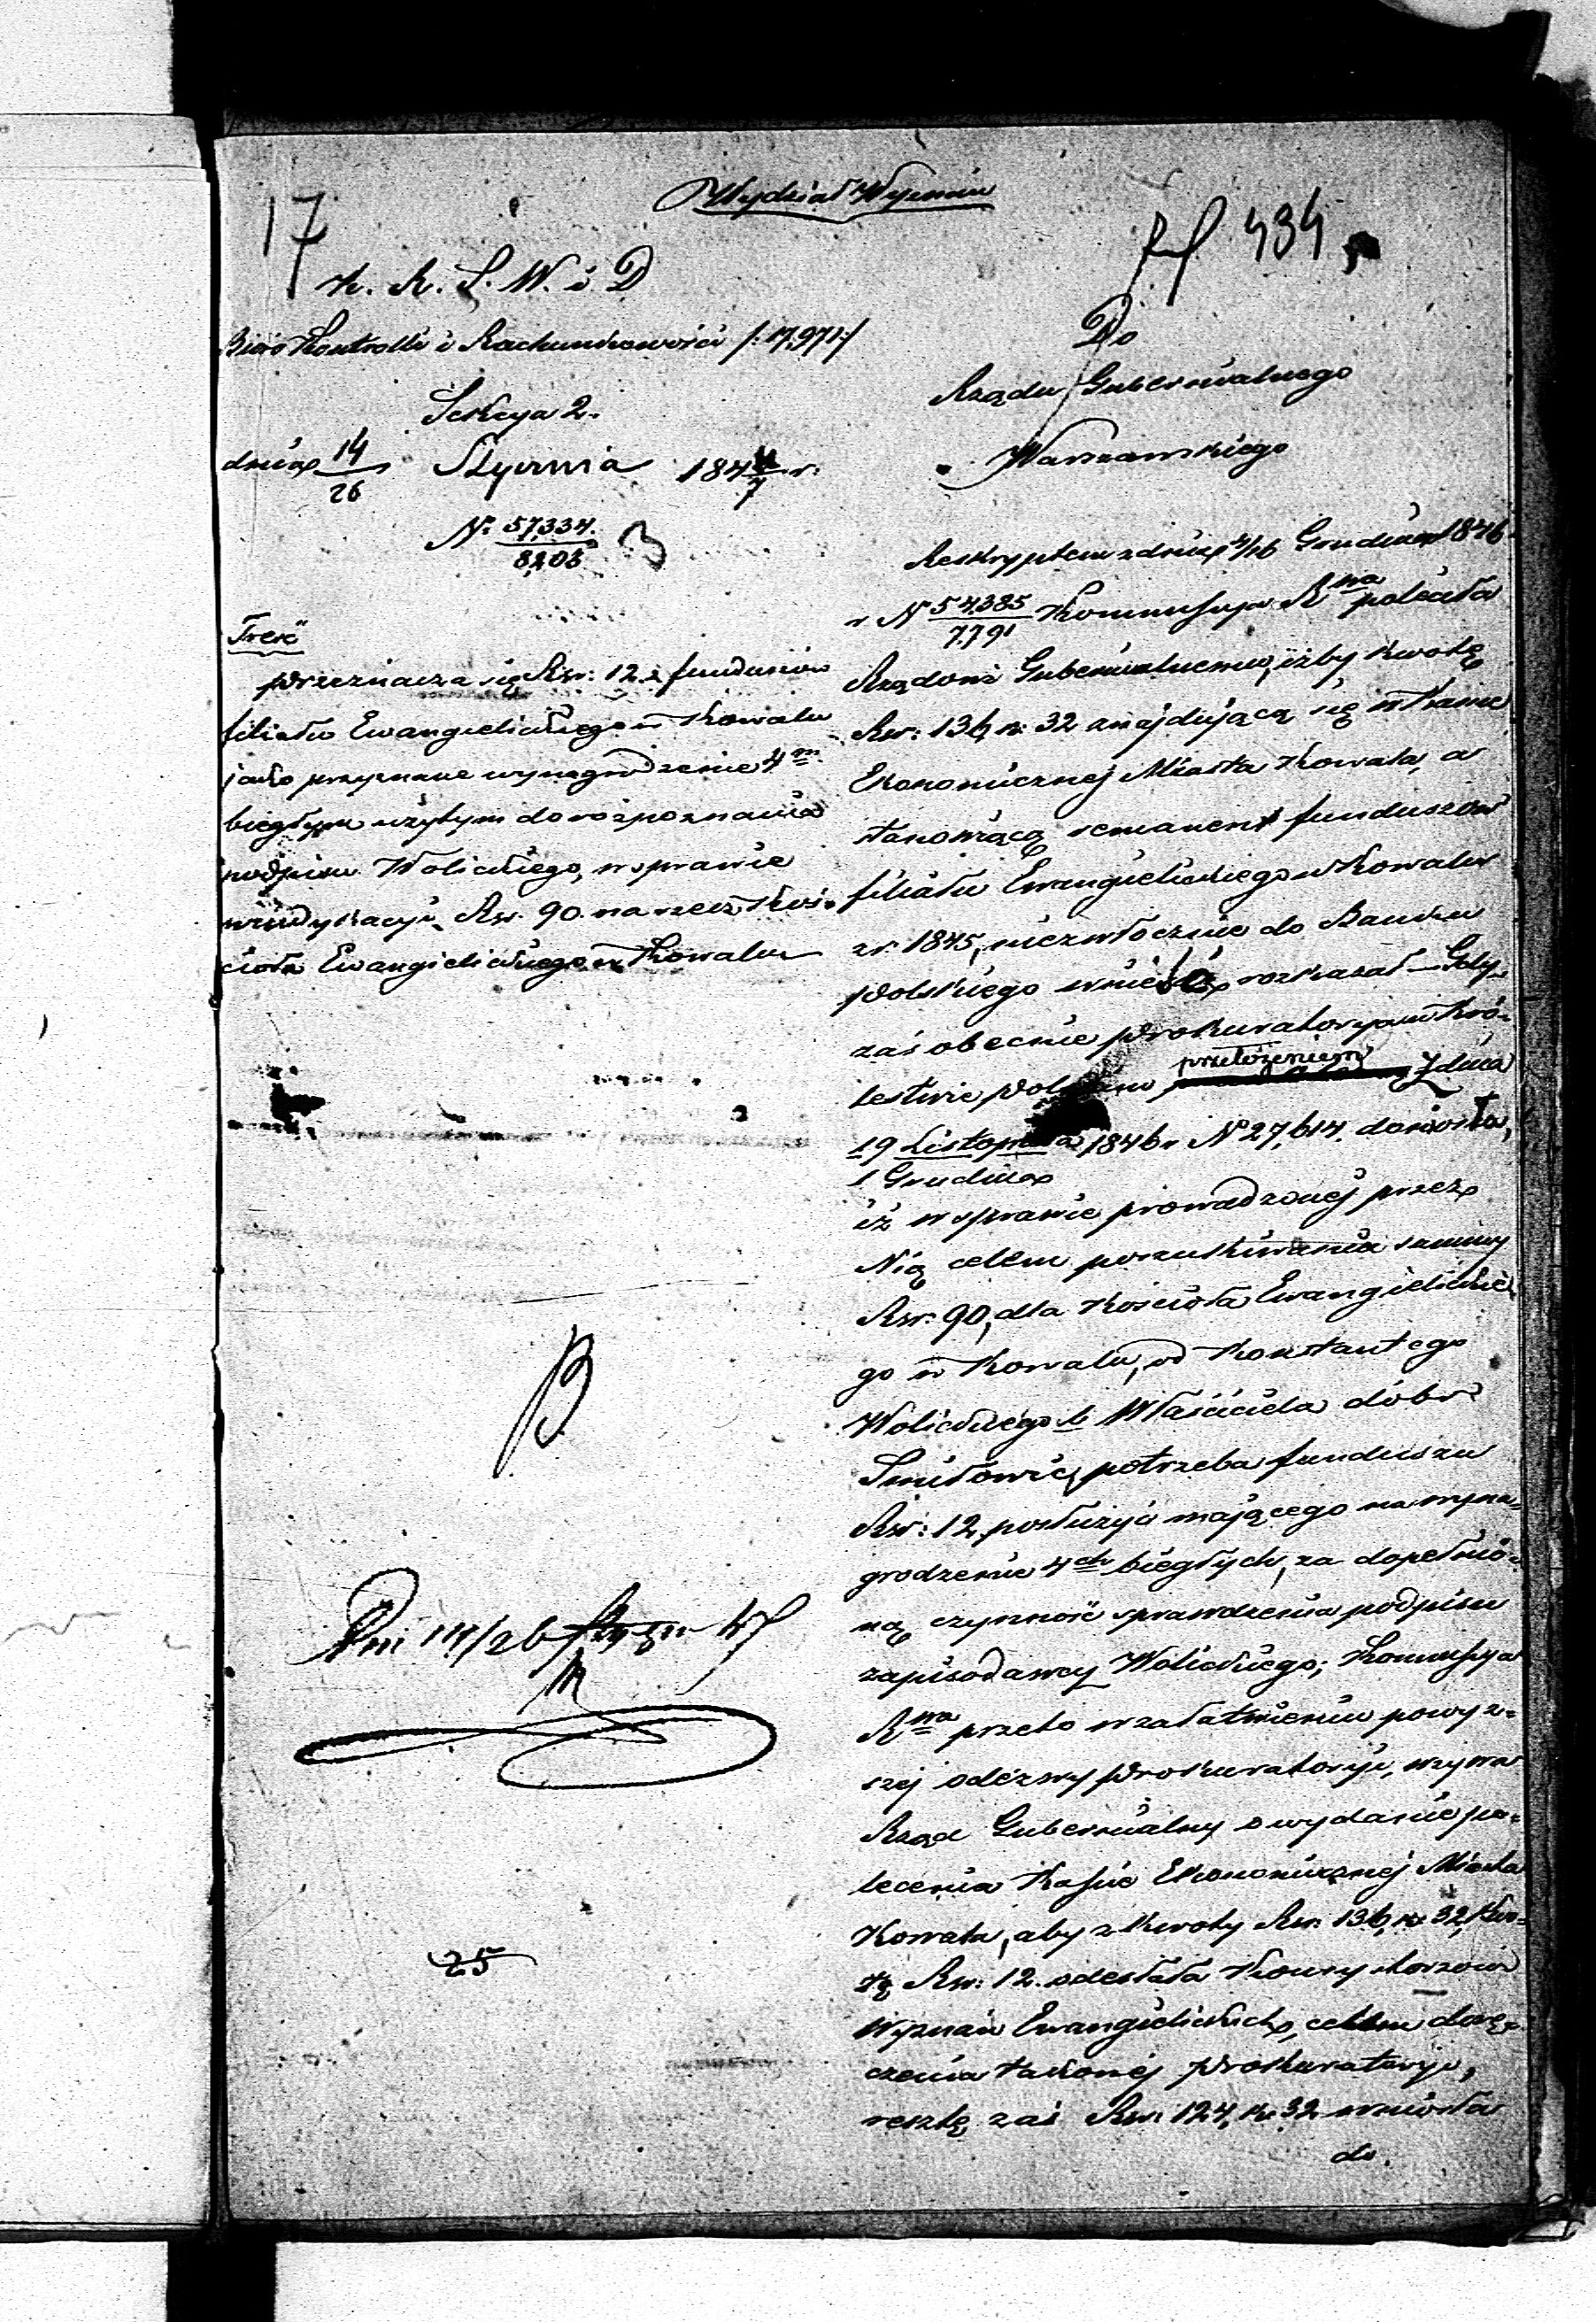 Wydział Wyznań
17
434
K. R. S. W. i D
Biuro Kontrolli i Rachunkowości /:17,971:/
Sekcya 2.
dnia 14/26 Stycznia 1847 r.
Nº 57,334/8,203
3
Treść
Przeznacza się Rsr: 12 z funduszów
filiału Ewangielickiego w Kowalu
jako przyznane wynagrodzenie 4m
biegłym użytym do rozpoznania
podpisu Wolickiego, w sprawie
windykacyi Rsr. 90. na rzecz Koś-
cioła Ewangielickiego w Kowalu
B
Dni 14/26 47
25
Do
Rządu Gubernialnego
Warszawskiego
Reskryptem z dnia 4/16 Grudnia 1846
r. N 54385/7,791 Kommissya Rwa poleciła
Rządowi Gubernialnemu, iżby kwotę
Rsr: 136 k: 32 znajdującą się w Kassie
Ekonomicznej Miasta Kowala, a
stanowiącą remanent funduszów
filiału Ewangielickiego w Kowalu
z r. 1845, niezwłocznie do Banku
Polskiego wnieść rozkazał – Gdy
zaś obecnie Prokuratorya w Kró-
lestwie Polskiem przełożeniem z dnia
19 Listopada/1 Grudnia 1846 r. Nº 27,614. doniosła,
iż w sprawie prowadzonej przez
Nią celem poszukiwania summy
Rsr. 90, dla Kościoła Ewangielickie-
go w Kowalu, od Konstantego
Wolickiego b. Właściciela dóbr
Smiłowic, potrzeba funduszu
Rsr: 12, posłużyć mającego na wyna-
grodzenie 4ch biegłych, za dopełnio-
ną czynność sprawdzenia podpisu
zapisodawcy Wolickiego; Kommissya
Rwa przeto w załatwieniu powyż-
szej odezwy Prokuratoryi, wzywa
Rząd Gubernialny o wydanie po-
lecenia Kassie Ekonomicznej Miasta
Kowala, aby z kwoty Rsr. 136, k: 32, kwo-
tę Rsr: 12. odesłała Konsystorzowi
Wyznań Ewangielickich, celem dorę-
czenia takowej Prokuratoryi,
resztę zaś Rsr. 124, k: 32 wniosła
do